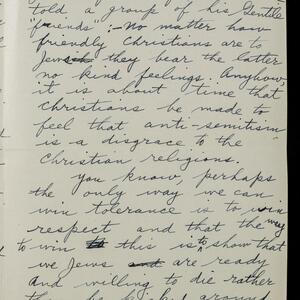 told a group of his Gentile
"friends":- No matter how
friendly Christians are to
Jews they bear the latter
no kind feelings. Anyhow,
it is about time that
christians be made to
feel that anti-semitism
is a disgrace to the
Christian religions.
You know, perhaps
the only way we can
win tolerance is to win
respect and that the way
to win this is to show that
we Jews are ready
and willing to die rather